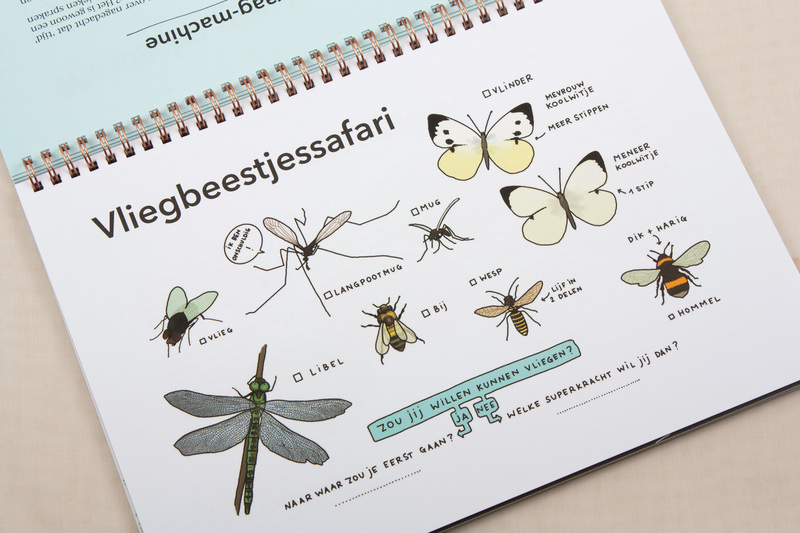 over nagedacht dat 'tijd'
? Het is gewoon een
spraken
aag-machine
Vliegbeestjessafari
VLINDER
MEVROUW
KOOLWITJE
MEER STIPPEN
MENEER
KOOLWITJE
1 STIP
IK BEN
ONSCHULDIG
!
LANGPOOTMUG
MUG
DIK + HARIG
VLIEG
BIJ
WESP
LIJF IN
2 DELEN
HOMMEL
LIBEL
ZOU JIJ WILLEN KUNNEN VLIEGEN?
JA
NEE
WELKE SUPERKRACHT WIL JIJ DAN?
NAAR WAAR ZOU JE EERST GAAN?